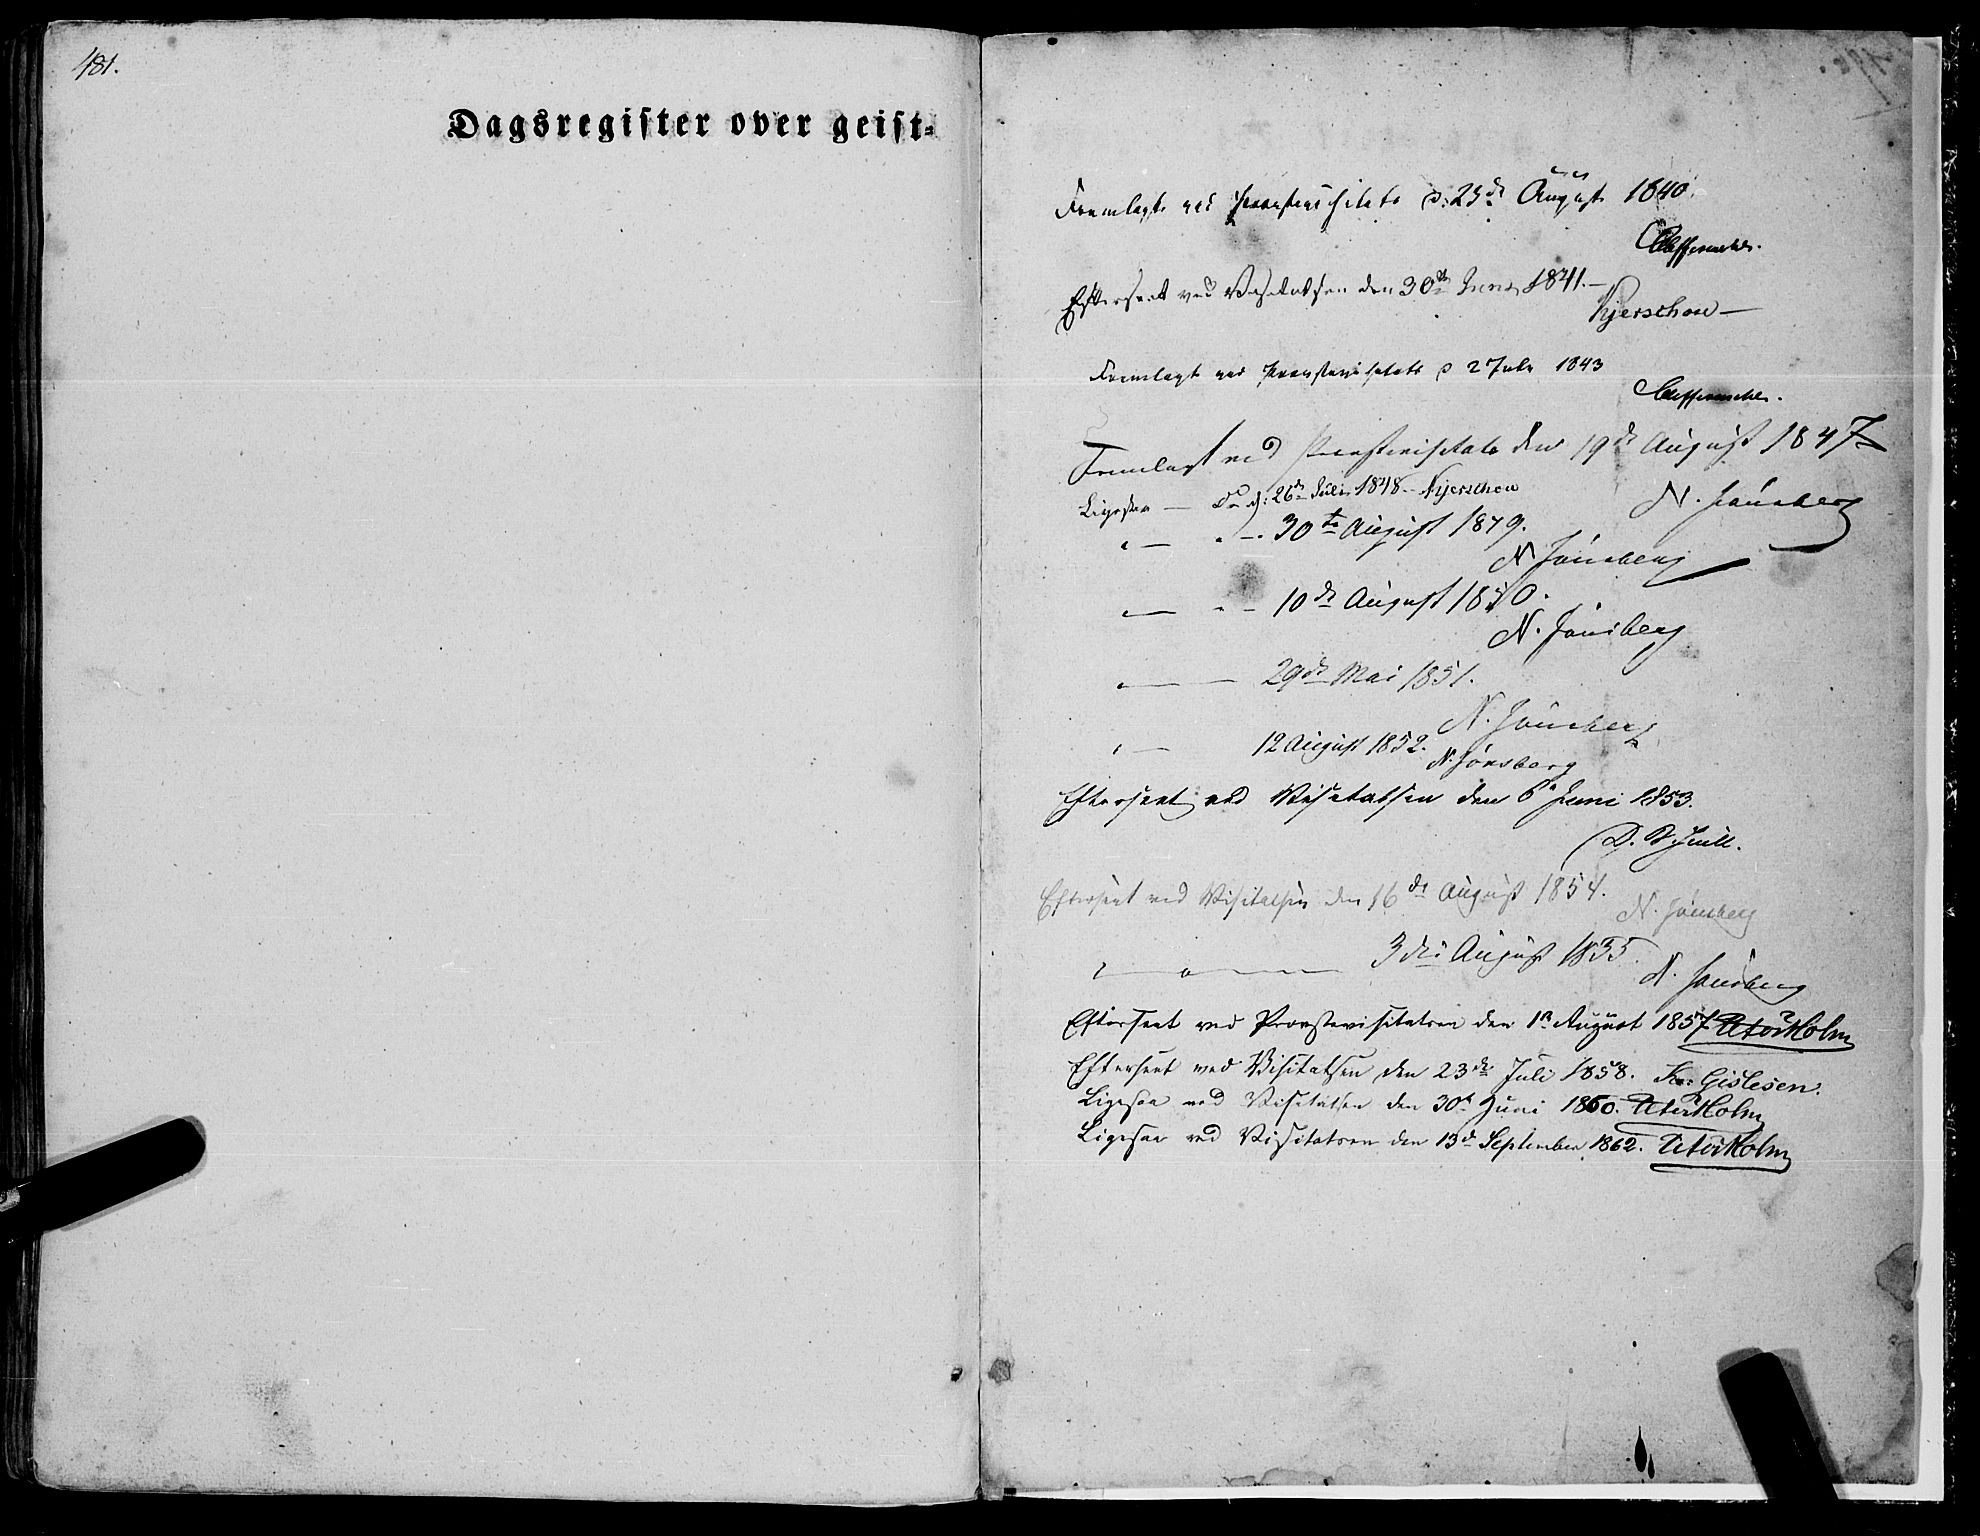 481.
Dagsregister over geist-
Fremlagt ved Provstevisitats d: 25de August 1840.
Efterseet ved Visitatsen den 30te Juni 1841.-
Kjerschow-
Fremlagt ved Provstevisitats d 2 July 1843
Fremlagt ved Provstevisitats den 19de August 1847
Ligesaa — Do d: 26de Juli 1848 - Kjerschow
N. Jönsberg
" — " - 30te August 1849.
N. Jönsberg
" — " - 10de August 1850.
N. Jönsberg
" — 29de Mai 1851.
N. Jönsberg
" — 12 August 1852.
N. Jönsberg
Efterseet ved Visitatsen den 6te Juni 1853.
Efterseet ved Visitatsen den 16de August 1854. N. Jönsberg
" — " — 3die August 1855.
N. Jönsberg
Efterseet ved Provstevisitatsen den August 1857 Holm
Efterseet ved Visitatsen den 23de Juli 1858. Kn: Gislesen.
Ligesaa ved Visitatsen den 30te Juni 1860. Holm
Ligesaa ved Visitatsen den 13de September 1862. Holm